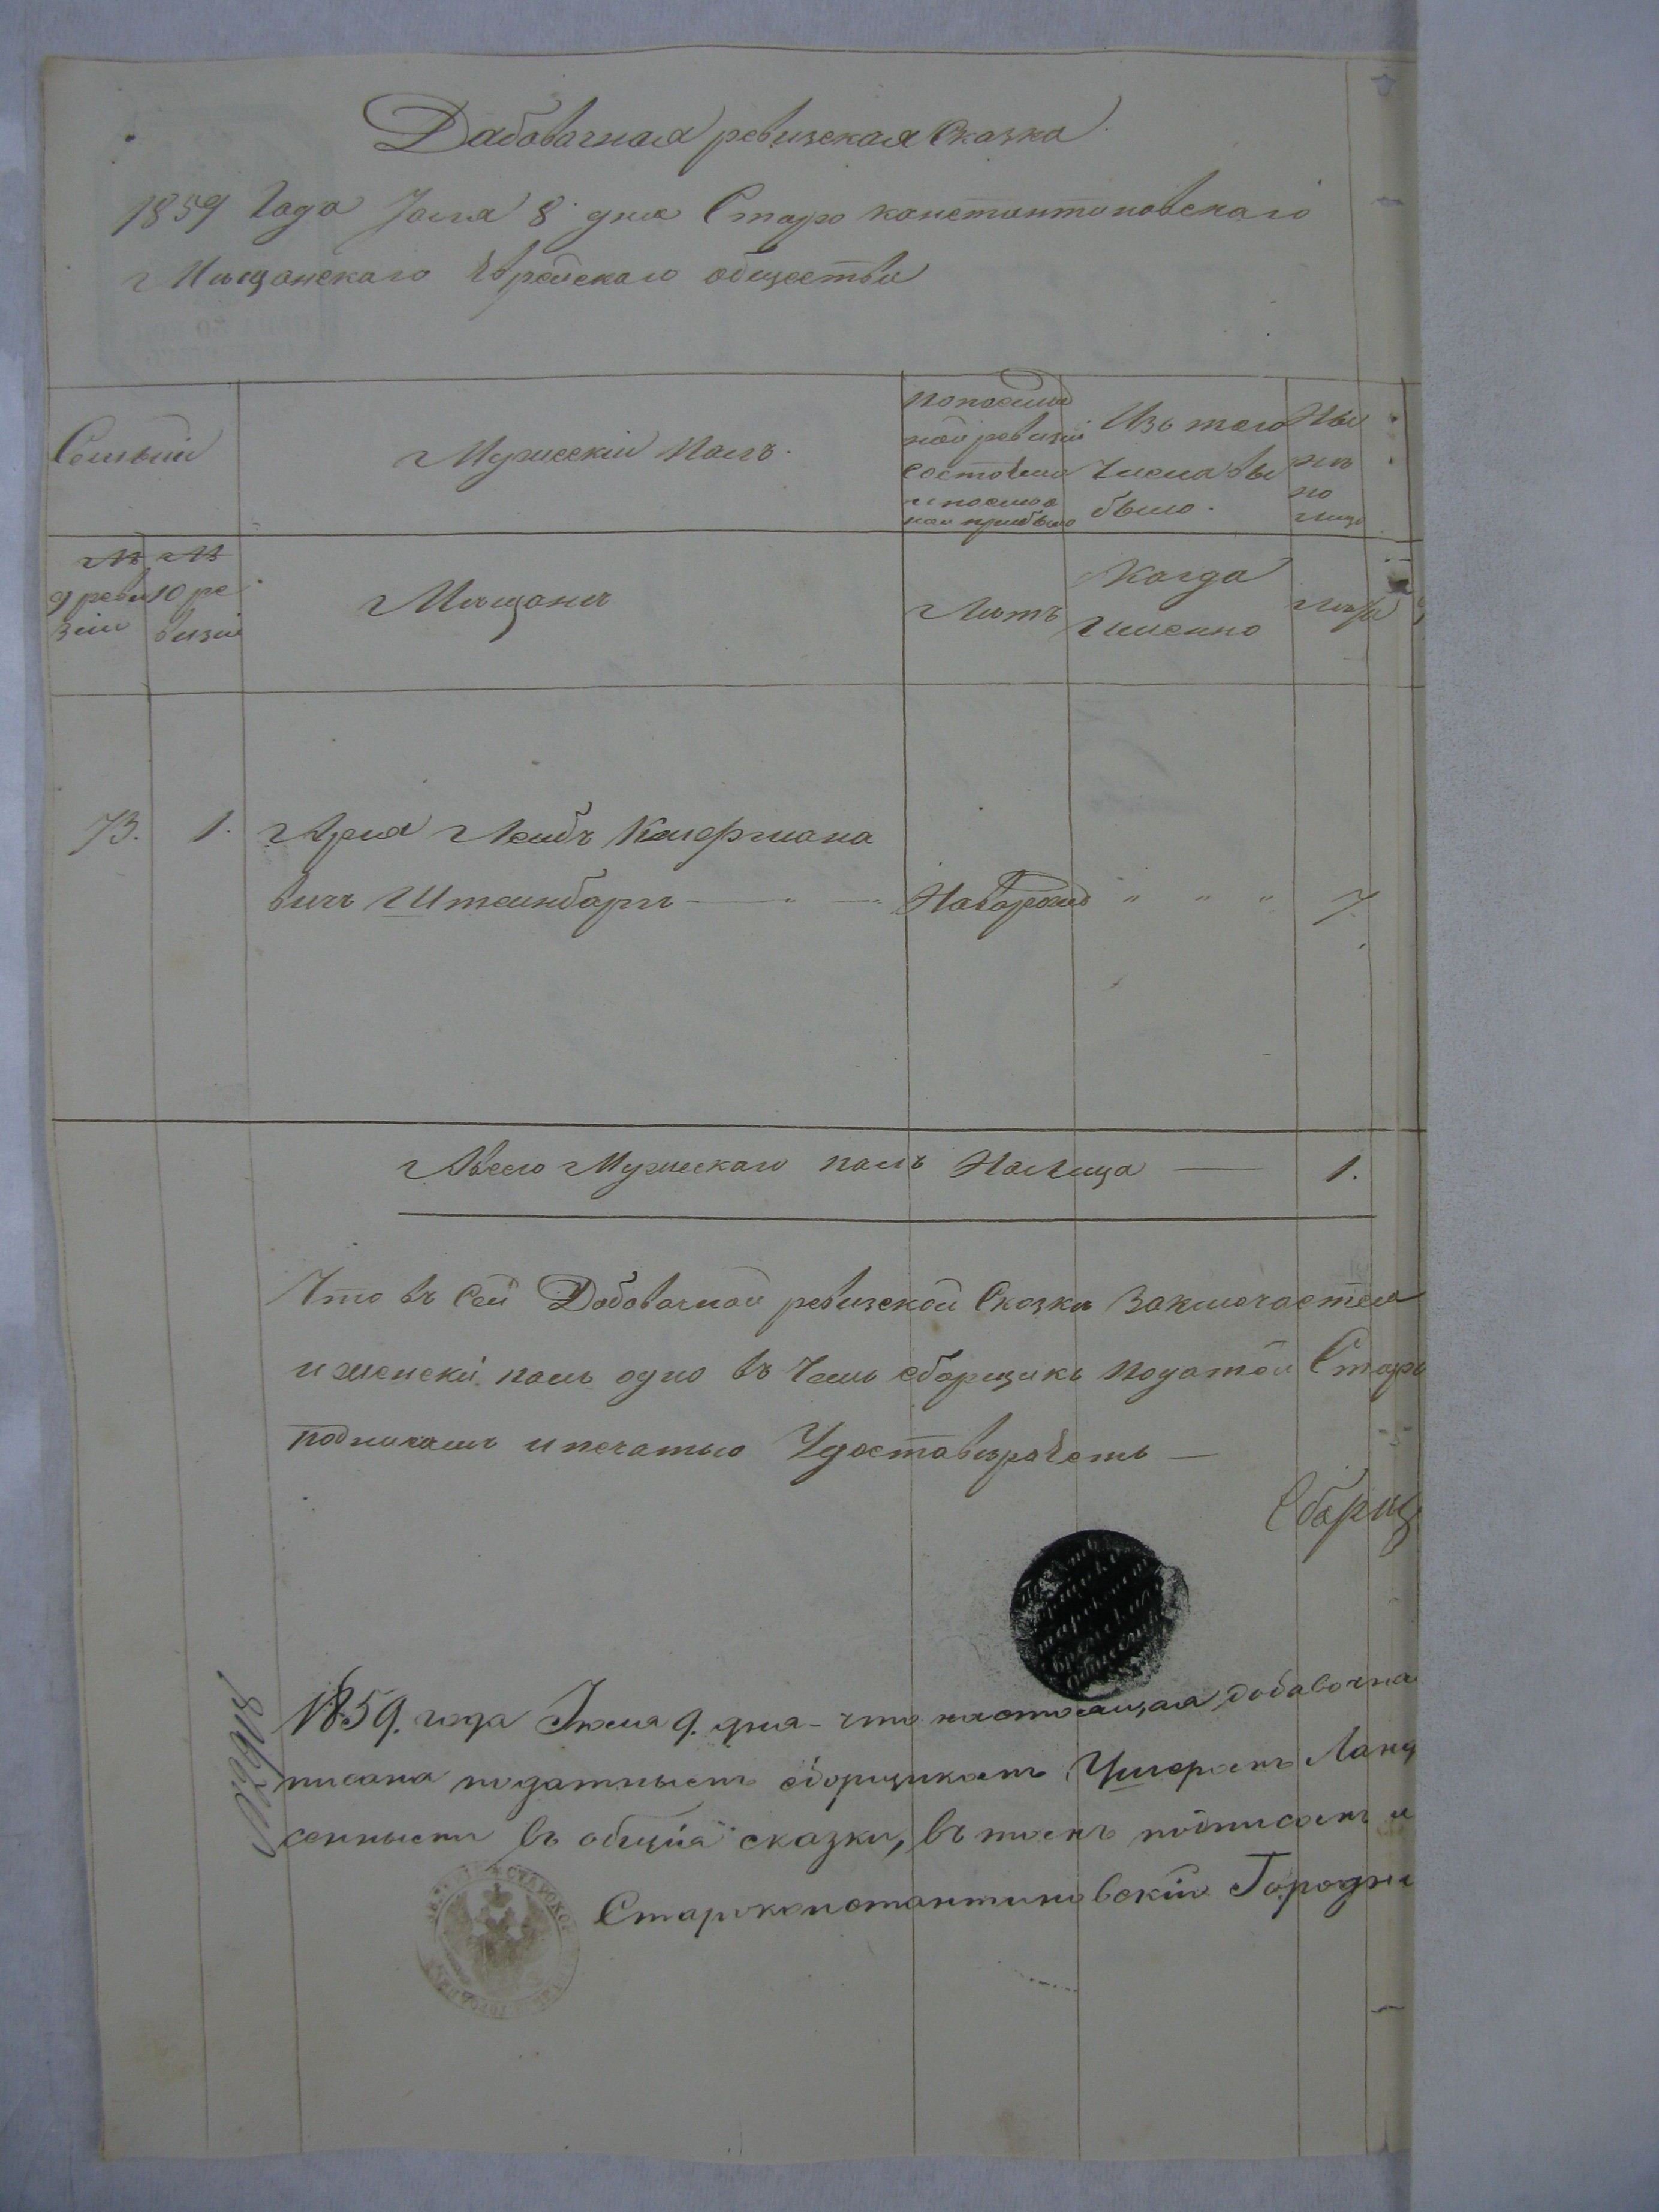 Дабовочная ревизская Сказка
1859 Года Юля 8 дня Старо константиновскаго
Мещанскаго Еврейскаго общества
Семьии
Мужескій Полъ.
попослед
ней ревизіи
состояло
и послеа
нои прибыло
Изъ того
Числа вы
было.
Ны
не
на
лицо
№ №
9 реви 10 ре
зіи визіи
Мещане
Летъ
Когда
Именно
Лета
73. 1. Ария Лейбъ Калфмана
вичъ Штеинбаргъ — Новорожд " " " 7.
Авсего Мужескаго полъ НаЛица — 1.
Что въ Сей Добовочной ревизской Сказки Заключается
и женскі полъ одно въ Чемъ сборщикъ податей Старо
подписомъ и печатью Удоставѣраетъ —
Сборщ
1859. года Іюля 9. дня - что настоящая добавочна
писана податнымъ сборщикомъ Лан
сеннымъ въ общіа сказки, въ томъ подписомъ и
Староконстантиновскій Городни